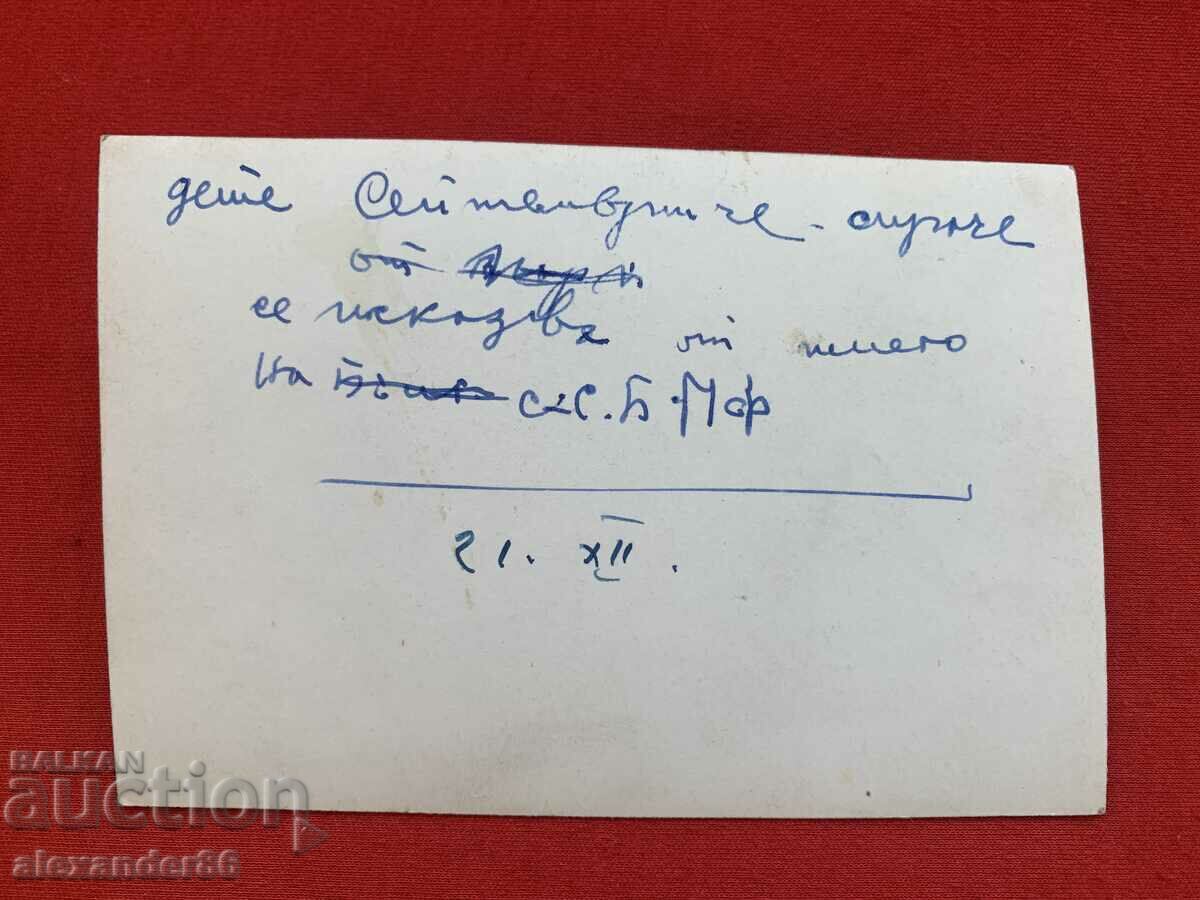 дете Септемврийче - сираче
от
се изказва от името
на С-С. Б. М ф
21. XII.
BALKAN
auction
alexander86